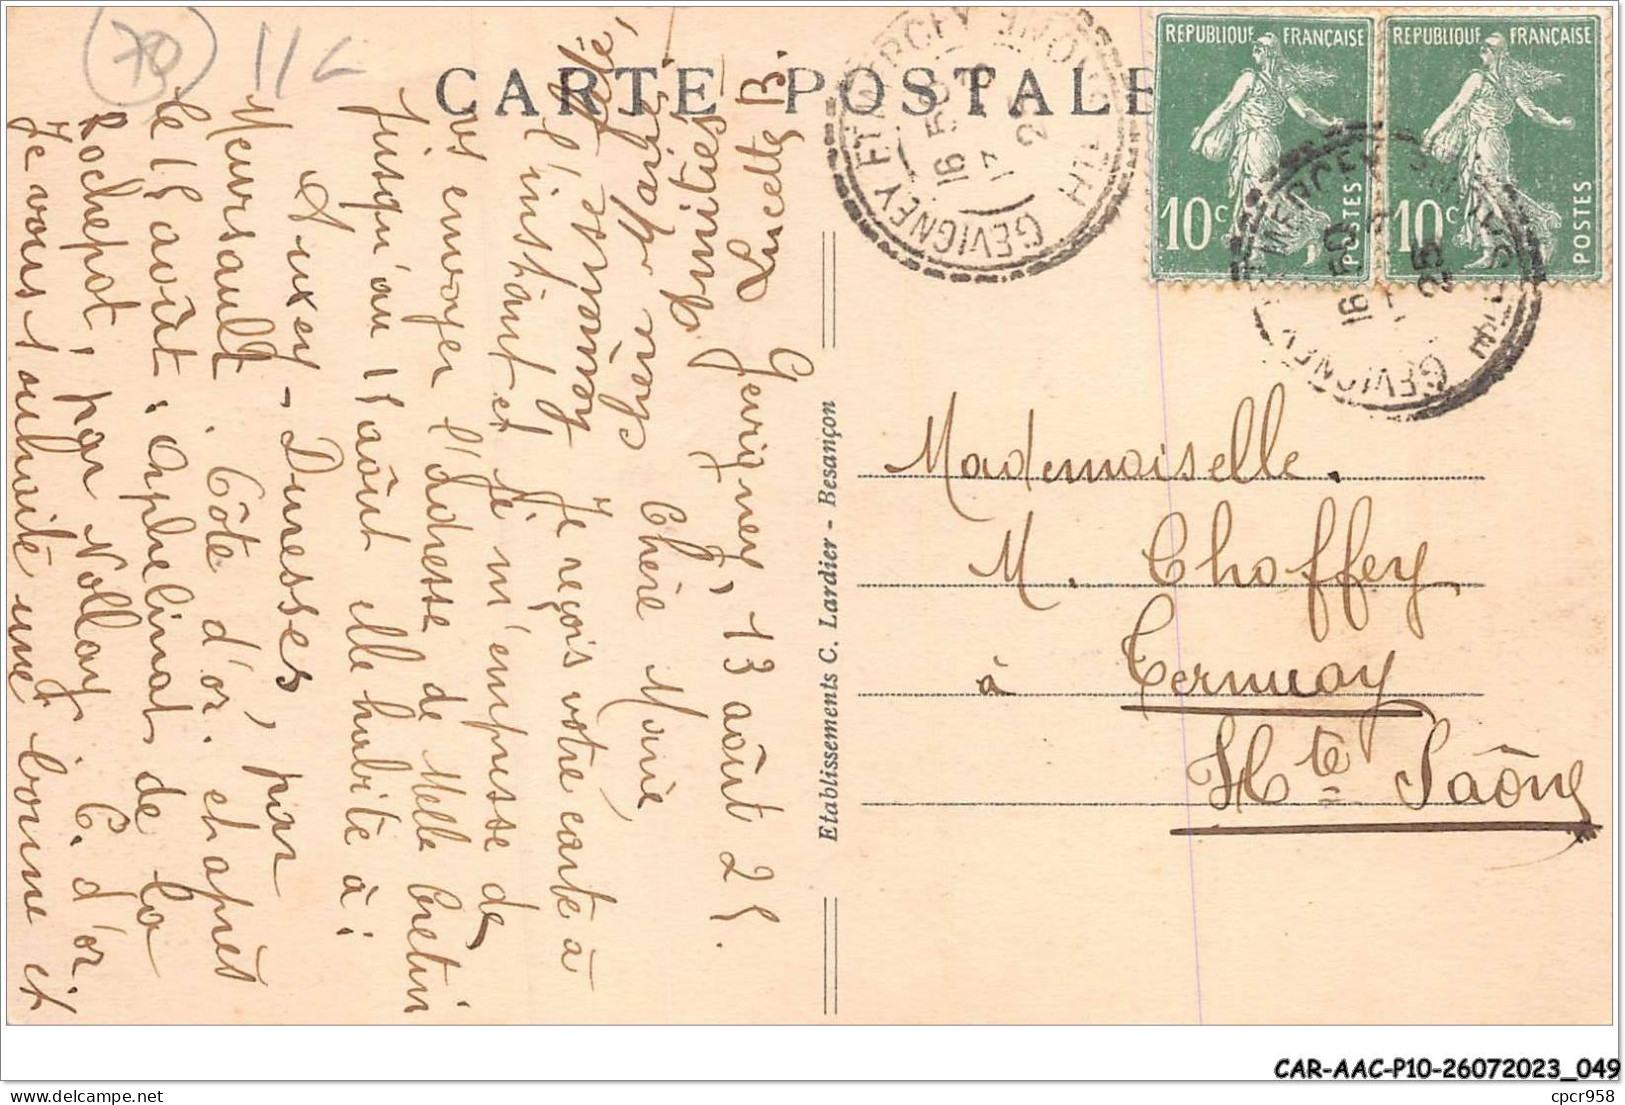 (70) 116
CARTE POSTALE
REPUBLIQUE FRANÇAISE
10c POSTES
REPUBLIQUE FRANÇAISE
10c POSTES
GEVIGNEY ET MERCEY
HTE SAONE
16 50
25
GEVIGNEY ET MERCEY
HTE SAONE
16 50
25
Gevigney, 13 août 25.
Chère Marie,
Je reçois votre carte à
l'instant et je m'empresse de
vs envoyer l'adresse de Melle Cretin
jusqu'au 15 août elle habite à :
Auxey-Duresses, par
Meursault. Côte d'or. et après
le 15 août. Orphelinat de la
Rochepot, par Nollay C. d'or.
Je vous souhaite une bonne et
chère Marie,
Amitiés
Lucette B.
Etablissements C. Lardier - Besançon
Mademoiselle.
M. Choffey
à Ternuay
Hte Saône
CAR-AAC-P10-26072023_049
cpcr958